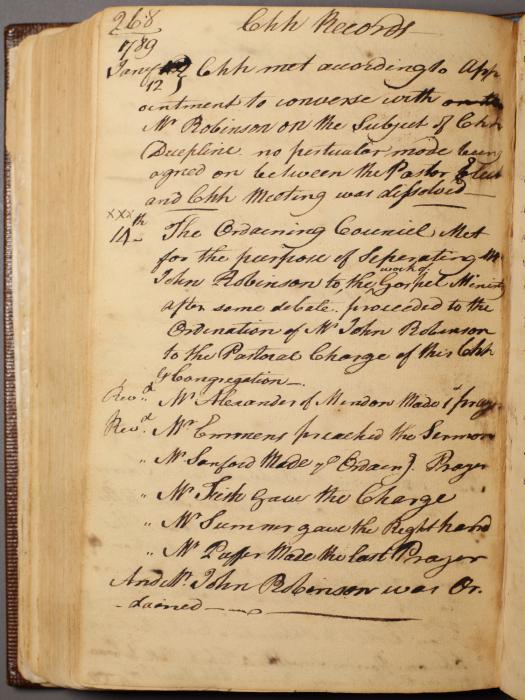 268 Chh Records
1789
Jany Chh met according to App
12 ointment to converse with
Mr Robinson on the Subject of Chh
Diecpline. no perticuler mode been
agred on between the Pastor Elect
and Chh Meeting was dissolved
xxx
14th The Ordaining Counciel Met
for the purpose of Seperating Mr
John Robinson to the work of Gospel Ministry
after some debate. proceeded to the
Ordination of Mr John Robinson
to the Pastoral Charge of this Chh
& Congregation—
Revd. Mr Alexander of Mendon Made 1st pray
Revd. Mr Emmens preached the Sermon
" Mr Sanford Made ye Ordaing. Prayer
" Mr Fish Gave the Charge
" Mr Sumner gave the Right hand
" Mr Made the last Prayer
And Mr. John Robinson was Or-
-dained—